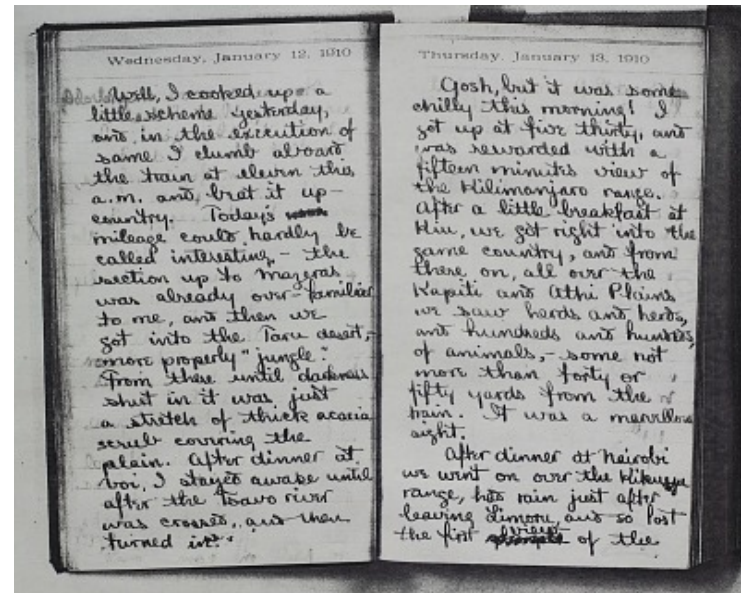 Wednesday, January 12, 1910
Well, I cooked up a
little scheme yesterday,
and in the execution of
same I clumb aboard
the train at eleven this
a.m. and beat it up-
country. Today's
mileage could hardly be
called interesting,- the
section up to Mazeras
was already over-familiar
to me, and then we
got into the Taru desert,-
more properly "jungle."
From there until darkness
shut in it was just
a stretch of thick acacia
scrub covering the
plain. After dinner at
Voi, I stayed awake until
after the Tsavo river
was crossed, and then
turned in.
Thursday, January 13, 1910
Gosh, but it was some
chilly this morning! I
got up at five thirty, and
was rewarded with a
fifteen minutes view of
the Kilimanjaro range.
After a little breakfast at
Kiu, we got right into the
game country, and from
there on, all over the
Kapiti and Athi Plains
we saw herds and herds,
and hundreds and hundreds,
of animals,- some not
more than forty or
fifty yards from the
train. It was a marvellous
sight.
After dinner at Nairobi
we went on over the Kikuyu
range, had rain just after
leaving Limoru, and so lost
the first view of the